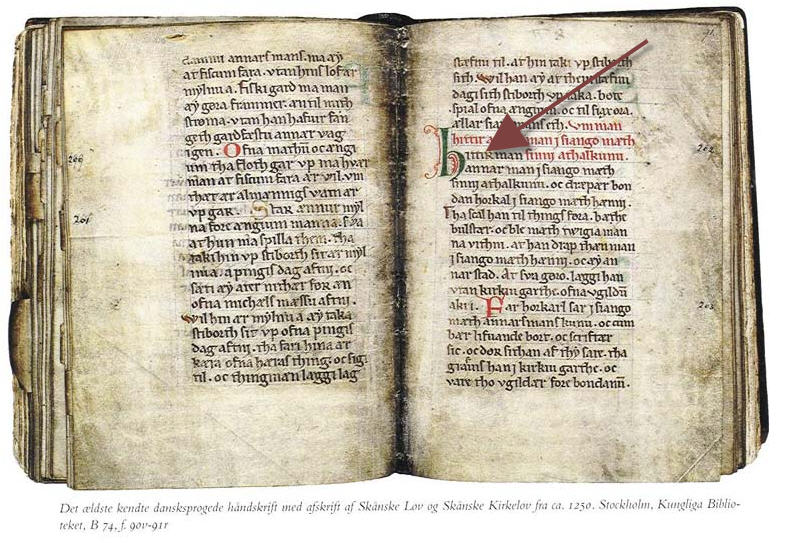 annars mans. ma æy
at fiscum fara. vtan hins lof ær
mylnu a. Fiski gard ma man
æy gøra frammer. æn til mith
strøma. vtan han hafuær fan
geth gardfæstu annær vag
igen. Ofna mathum oc ængi
um tha floth gar vp ma hvær
man at fiscum fara ær vil. vm
thær ær almænnings vatn ær
vp gar. Star annur myl
na fore ængium manna. sva
at hun ma spilla them. tha
taki hin vp stiborth sit ær myl
nu a. pingis dag aftni. oc
sæti æy atær nithær før æn
ofna michæls mæssu aftni.
Wil hin ær mylnu a æy taka
stiborth sit vp ofna pingis
dag aftni. tha fari hina ær
kæra ofna hæras thing. oc
til. oc thingmæn læggi lag
266
201
stæfnu til. at hin taki vp stiborth
sith. Wil han æy at them stæfnu
dagi sith stiborth vp taka. bøte
spial ofna ængium. oc til
ællar mans eth. Vm man
hittir man i siango mæth
man sinni athalkunu.
annar man i siango mæth
sinni athalkunu. oc dræpær bon
dan horkal i siango mæth hænni.
tha scal han til things føra. bathe
bulstær. oc ble mæth twigia man
na vitnum. at han drap then man
i siango mæth hænni. oc æy an
nar stad. At sva gøro. læggi han
vtan kirkiu garthe. ofna vgildum
akri. Far horkarl sar i siango
mæth annars mans kunu. oc cum
bær lifuande bort. oc scriftær
sic. oc dør sithan af thy sare. tha
grafus han i kirkiu garthe. oc
vare tho vgildær fore bondanum.
262
263
Det ældste kendte dansksprogede håndskrift med afskrift af Skånske Lov og Skånske Kirkelov fra ca. 1250. Stockholm, Kungliga Biblio-
teket, B 74, f. 90v-91r